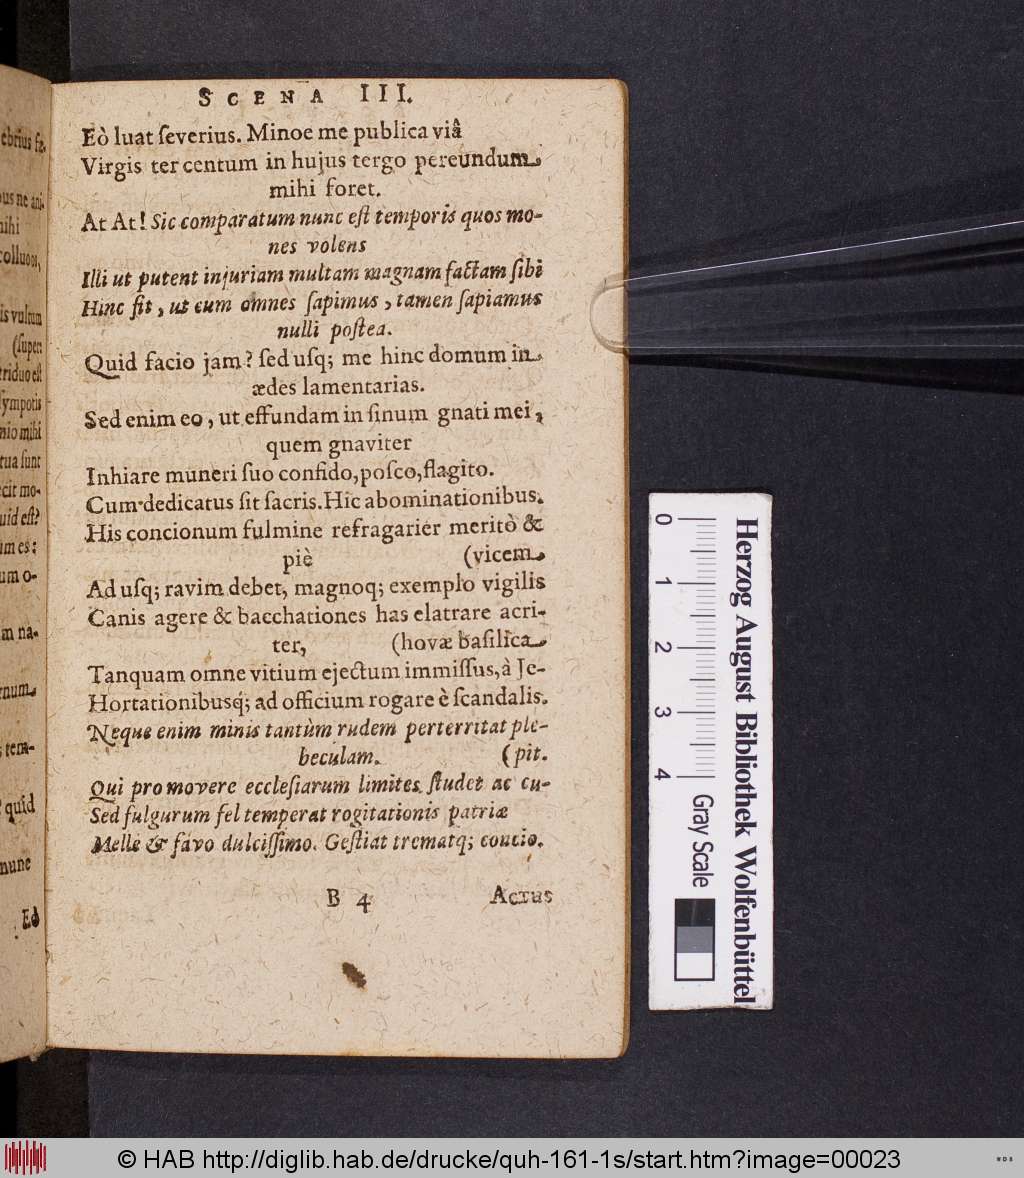 ebrius
SCENA III.
Eò luat ſeverius. Minoe me publica viâ
Virgis ter centum in hujus tergo pereundum
mihi foret.
At At! Sic comparatum nunc eſt temporis quos mo-
nes volens
Illi ut putent injuriam multam magnam factam ſibi
Hinc fit, ut cum omnes ſapimus, tamen ſapiamus
nulli poſtea.
Quid facio jam? ſed uſq; me hinc domum in
ædes lamentarias.
Sed enim eo, ut effundam in ſinum gnati mei,
quem gnaviter
Inhiare muneri ſuo confido, poſco, flagito.
Cum dedicatus ſit ſacris. Hic abominationibus.
His concionum fulmine refragarier meritò &
piè (vicem
Ad uſq; ravim debet, magnoq; exemplo vigilis
Canis agere & bacchationes has elatrare acri-
ter, (hovæ baſilica
Tanquam omne vitium ejectum immiſſus, à Je-
Hortationibusq́; ad officium rogare è ſcandalis.
Neque enim minis tantùm rudem perterritat ple-
beculam. (pit.
Qui promovere eccleſiarum limites ſtudet ac cu-
Sed fulgurum fel temperat rogitationis patriæ
Melle & favo dulciſſimo. Geſtiat trematq; concio.
B 4 Actus
mihi
vultum
(ſuper
triduo eſt
ympotis
nio mihi
tua ſunt
cit mo-
uid eſt?
um o-
m na-
quid
nunc
Eò
0 1 2 3 4
Gray Scale
Herzog August Bibliothek Wolfenbüttel
© HAB http://diglib.hab.de/drucke/quh-161-1s/start.htm?image=00023